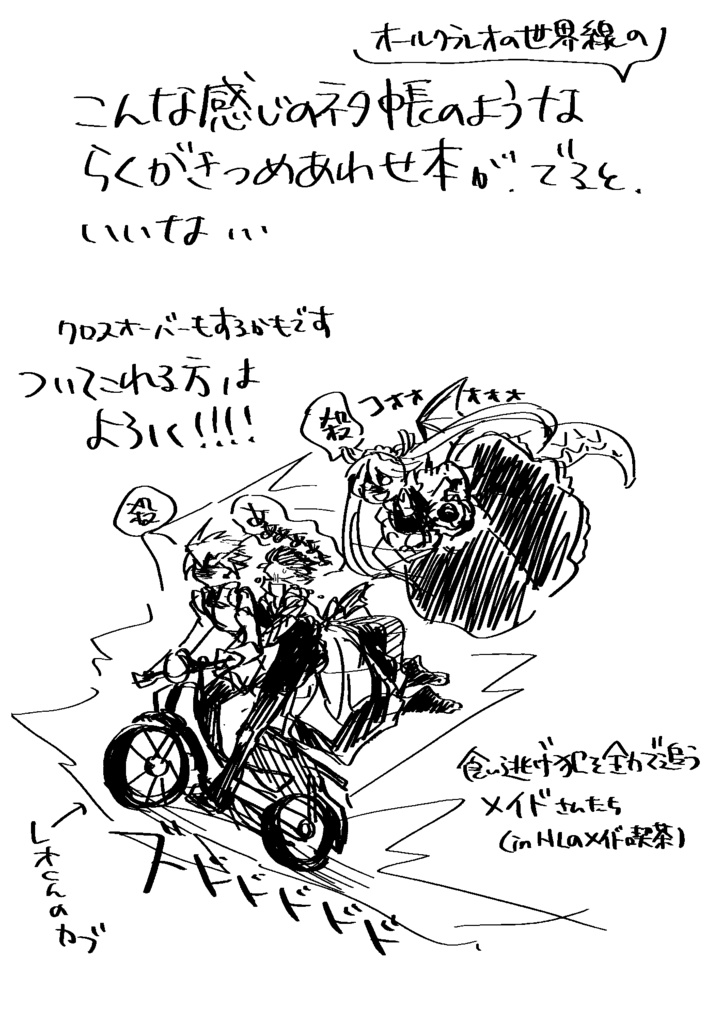 オールクラレオの世界線の
こんな感じのネタ帳のような
らくがきつめあわせ本が、でると、
いいな…
クロスオーバーもするかもです
ついてこれる方は
よろしく!!!!
殺
コォォォォォォ
殺
食い逃げ犯を全力で追う
メイドさんたち
(in HLのメイド喫茶)
レオくんのカブ
ズドドドドドド